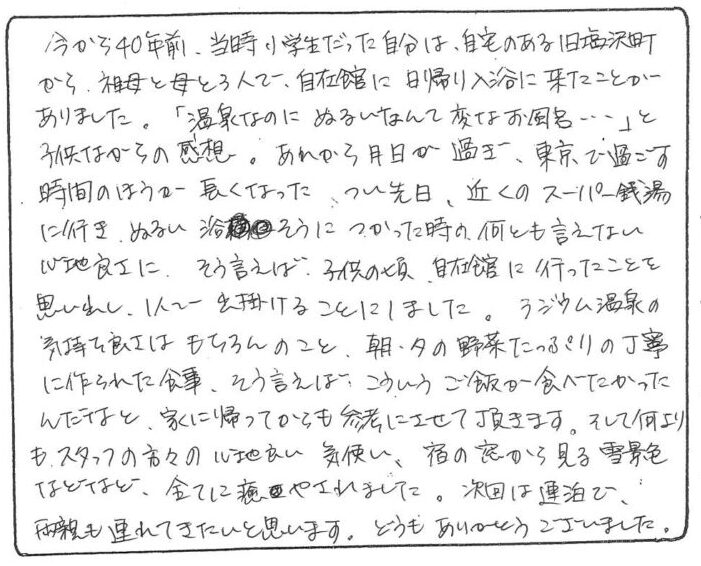 今から40年前、当時小学生だった自分は、自宅のある旧塩沢町
から、祖母と母と3人で、自在館に日帰り入浴に来たことが
ありました。「温泉なのにぬるいなんて変なお風呂・・・」と
子供ながらの感想。あれから月日が過ぎ、東京で過ごす
時間のほうが長くなった、つい先日、近くのスーパー銭湯
に行き、ぬるい浴そうにつかった時の、何とも言えない
心地良さに、そう言えば、子供の頃、自在館に行ったことを
思い出し、1人で出掛けることにしました。ラジウム温泉の
気持ち良さはもちろんのこと、朝・夕の野菜たっぷりの丁寧
に作られた食事、そう言えば、こういうご飯が食べたかった
んだなと、家に帰ってからも参考にさせて頂きます。そして何より
も、スタッフの方々の心地良い気使い、宿の窓から見る雪景色
などなど、全てに癒やされました。次回は連泊で、
両親も連れてきたいと思います。どうもありがとうございました。